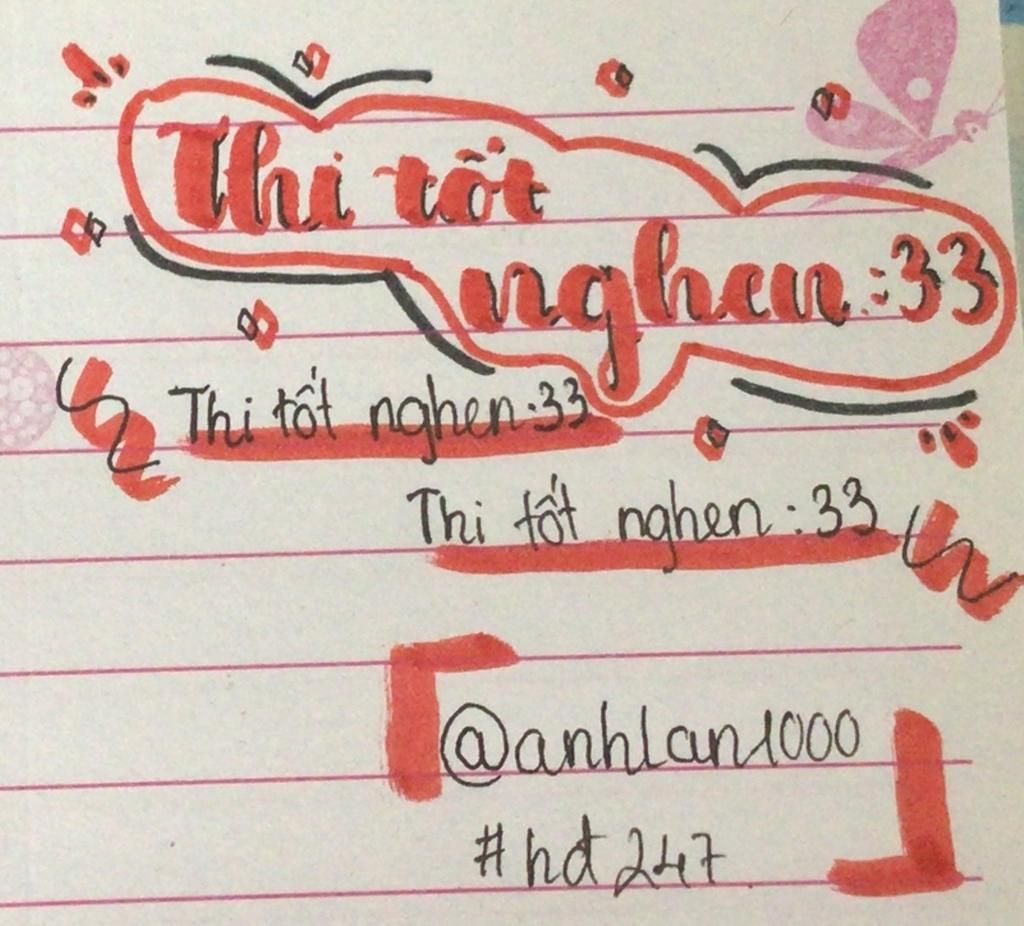 Thi tốt
nghen :33
Thi tốt nghen :33
Thi tốt nghen :33
@anhlan1000
#hđ247